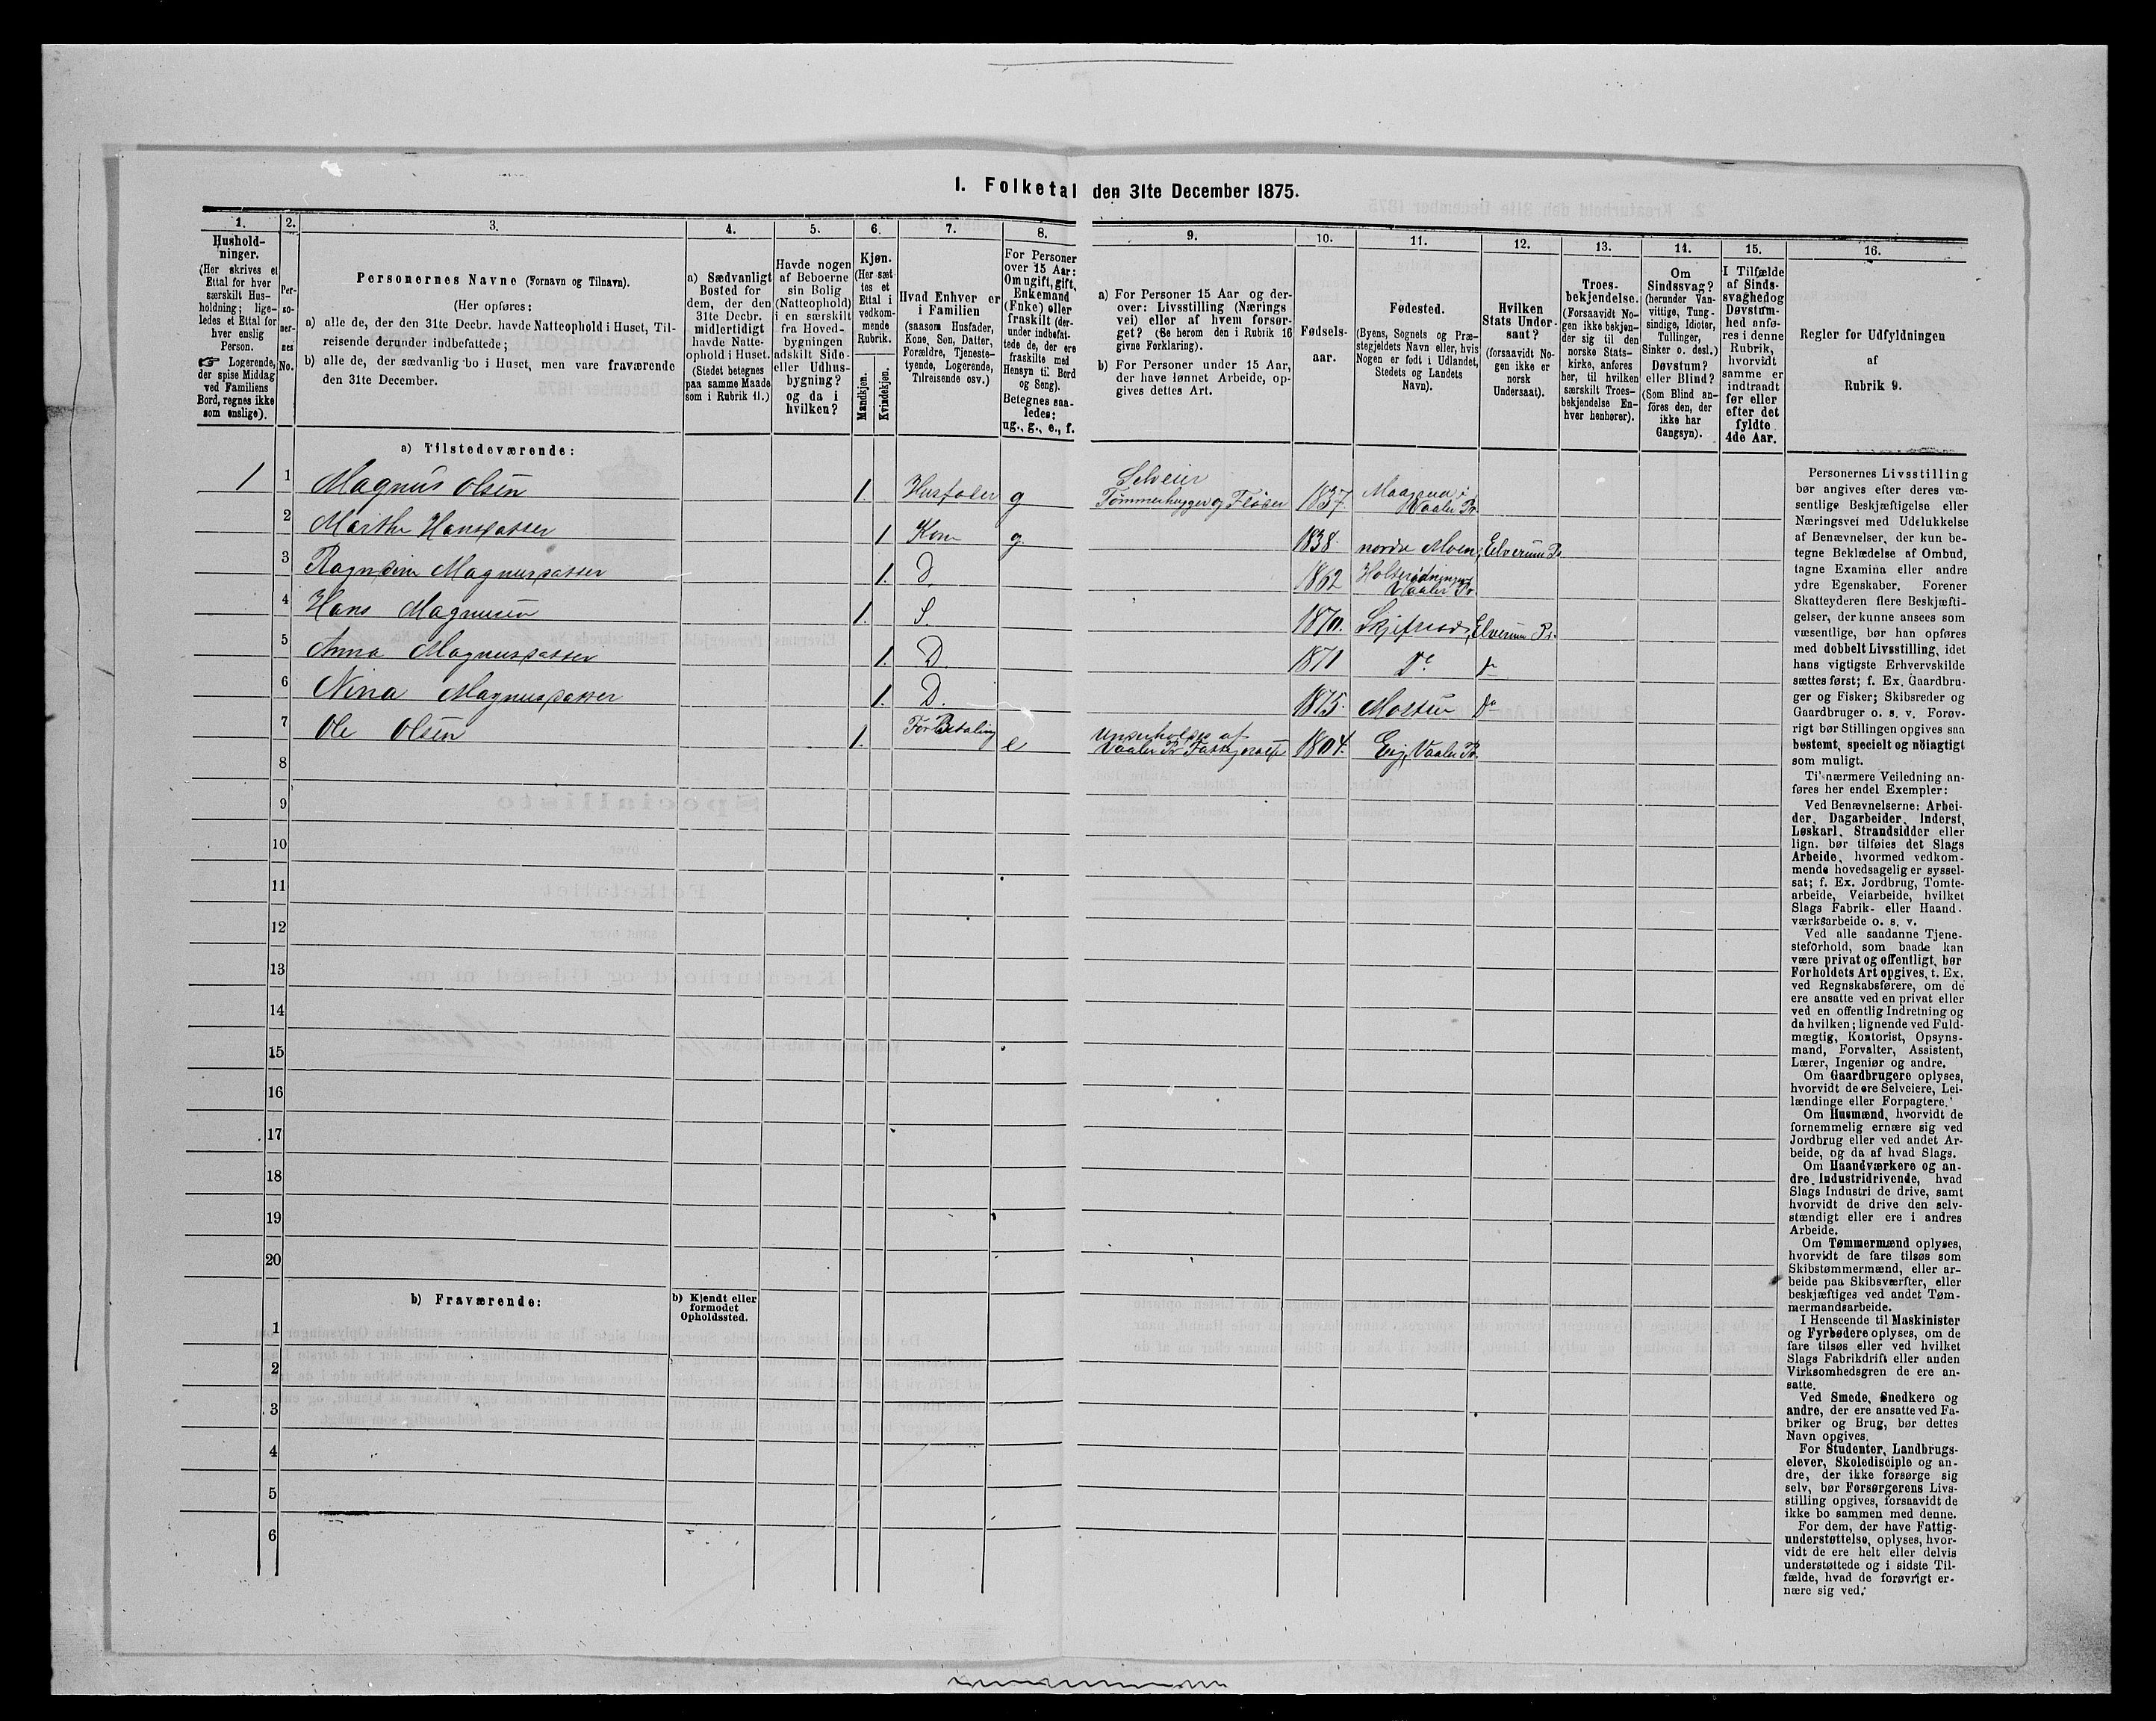 1. Folketal den 31te December 1875.
1.
Hushold-
ninger.
(Her skrives et
Ettal for hver
særskilt Hus-
holdning; lige-
ledes et Ettal for
hver enslig
Person.
☞ Logerende,
der spise Middag
ved Familiens
Bord, regnes ikke
som enslige).
2.
Per-
so-
ner-
nes
No.
3.
Personernes Navne (Fornavn og Tilnavn).
(Her opføres:
a) alle de, der den 31te Decbr. havde Natteophold i Huset, Til-
reisende derunder indbefattede;
b) alle de, der sædvanlig bo i Huset, men vare fraværende
den 31te December.
4.
a) Sædvanligt
Bosted for
dem, der den
31te Decbr.
midlertidigt
havde Natte-
ophold i Huset.
(Stedet betegnes
paa samme Maade
som i Rubrik 11.)
5.
Havde nogen
af Beboerne
sin Bolig
(Natteophold)
i en særskilt
fra Hoved-
bygningen
adskilt Side-
eller Udhus-
bygning?
og da i
hvilken?
6.
Kjøn.
(Her sæt-
tes et
Ettal i
vedkom-
mende
Rubrik.
Mandkjøn.
Kvindekjøn.
7.
Hvad Enhver er
i Familien
(saasom Husfader,
Kone, Søn, Datter,
Forældre, Tjeneste-
tyende, Logerende,
Tilreisende osv.)
8.
For Personer
over 15 Aar:
Om ugift, gift,
Enkemand
(Enke) eller
fraskilt (der-
under indbefat-
tede de, der ere
fraskilte med
Hensyn til Bord
og Seng).
Betegnes saa-
ledes:
ug., g., e., f.
9.
a) For Personer 15 Aar og der-
over: Livsstilling (Nærings-
vei) eller af hvem forsør-
get? (Se herom den i Rubrik 16
givne Forklaring).
b) For Personer under 15 Aar,
der have lønnet Arbeide, op-
gives dettes Art.
10.
Fødsels-
aar.
11.
Fødested.
(Byens, Sognets og Præ-
stegjeldets Navn eller, hvis
Nogen er født i Udlandet,
Stedets og Landets
Navn).
12.
Hvilken
Stats Under-
saat?
(forsaavidt No-
gen ikke er
norsk
Undersaat).
13.
Troes-
bekjendelse.
(Forsaavidt No-
gen ikke bekjen-
der sig til den
norske Stats-
kirke, anføres
her, til hvilken
særskilt Troes-
bekjendelse En-
hver henhører).
14.
Om
Sindssvag?
(herunder Van-
vittige, Tung-
sindige, Idioter,
Tullinger,
Sinker o. desl.)
Døvstum?
eller Blind?
(Som Blind an-
føres den, der
ikke har
Gangsyn).
15.
I Tilfælde
af Sinds-
svaghed og
Døvstum-
hed anfø-
res i denne
Rubrik,
hvorvidt
samme er
indtraadt
før eller
efter det
fyldte
4de Aar.
16.
Regler for Udfyldningen
af
Rubrik 9.
a) Tilstedeværende:
1 1 Magnus Olsen 1. Husfader g Selveier Tømmerhugger og Fløder 1837. i Vaaler Pr
2 Marthe Hansdatter 1 Kone g 1838. nordre Moen, Elverum Pr
3 Magnusdatter 1. D. 1862 Vaaler Pr
4 Hans Magnusen 1. S. 1870. Elverum Pr.
5 Anna Magnusdatter 1. D. 1871 Do
6 Nina Magnusdatter 1. D. 1875. do
7 Ole Olsen 1. For Betaling e Underholdes af Vaaler Pr 1804. Eng, Vaaler Pr.
8
9
10
11
12
13
14
15
16
17
18
19
20
b) Fraværende:
b) Kjendt eller
formodet
Opholdssted.
1
2
3
4
5
6
Personernes Livsstilling
bør angives efter deres væ-
sentlige Beskjæftigelse eller
Næringsvei med Udelukkelse
af Benævnelser, der kun be-
tegne Beklædelse af Ombud,
tagne Examina eller andre
ydre Egenskaber. Forener
Skatteyderen flere Beskjæfti-
gelser, der kunne ansees som
væsentlige, bør han opføres
med dobbelt Livsstilling, idet
hans vigtigste Erhvervskilde
sættes først; f. Ex. Gaardbru-
ger og Fisker; Skibsreder og
Gaardbruger o. s. v. Forøv-
rigt bør Stillingen opgives saa
bestemt, specielt og nöiagtigt
som muligt.
Til nærmere Veiledning an-
føres her endel Exempler:
Ved Benævnelserne: Arbei-
der, Dagarbeider, Inderst,
Løskarl, Strandsidder eller
lign. bør tilføies det Slags
Arbeide, hvormed vedkom-
mende hovedsagelig er syssel-
sat; f. Ex. Jordbrug, Tomte-
arbeide, Veiarbeide, hvilket
Slags Fabrik- eller Haand-
værksarbeide o. s. v.
Ved alle saadanne Tjene-
steforhold, som baade kan
være privat og offentligt, bør
Forholdets Art opgives, t. Ex.
ved Regnskabsførere, om de
ere ansatte ved en privat eller
ved en offentlig Indretning og
da hvilken; lignende ved Fuld-
mægtig, Kontorist, Opsyns-
mand, Forvalter, Assistent,
Lærer, Ingeniør og andre.
Om Gaardbrugere oplyses,
hvorvidt de ere Selveiere, Lei-
lændinge eller Forpagtere.
Om Husmænd, hvorvidt de
fornemmelig ernære sig ved
Jordbrug eller ved andet Ar-
beide, og da af hvad Slags.
Om Haandværkere og an-
dre Industridrivende, hvad
Slags Industri de drive, samt
hvorvidt de drive den selv-
stændigt eller ere i andres
Arbeide.
Om Tømmermænd oplyses,
hvorvidt de fare tilsøs som
Skibstømmermænd, eller ar-
beide paa Skibsværfter, eller
beskjæftiges ved andet Tøm-
mermandsarbeide.
I Henseende til Maskinister
og Fyrbødere oplyses, om de
fare tilsøs eller ved hvilket
Slags Fabrikdrift eller anden
Virksomhedsgren de ere an-
satte.
Ved Smede, Snedkere og
andre, der ere ansatte ved Fa-
briker og Brug, bør dettes
Navn opgives.
For Studenter, Landbrugs-
elever, Skoledisciple og an-
dre, der ikke forsørge sig
selv, bør Forsørgerens Livs-
stilling opgives, forsaavidt de
ikke bo sammen med denne.
For dem, der have Fattig-
understøttelse, oplyses, hvor-
vidt de ere helt eller delvis
understøttede og i sidste Til-
fælde, hvad de forøvrigt er-
nære sig ved.